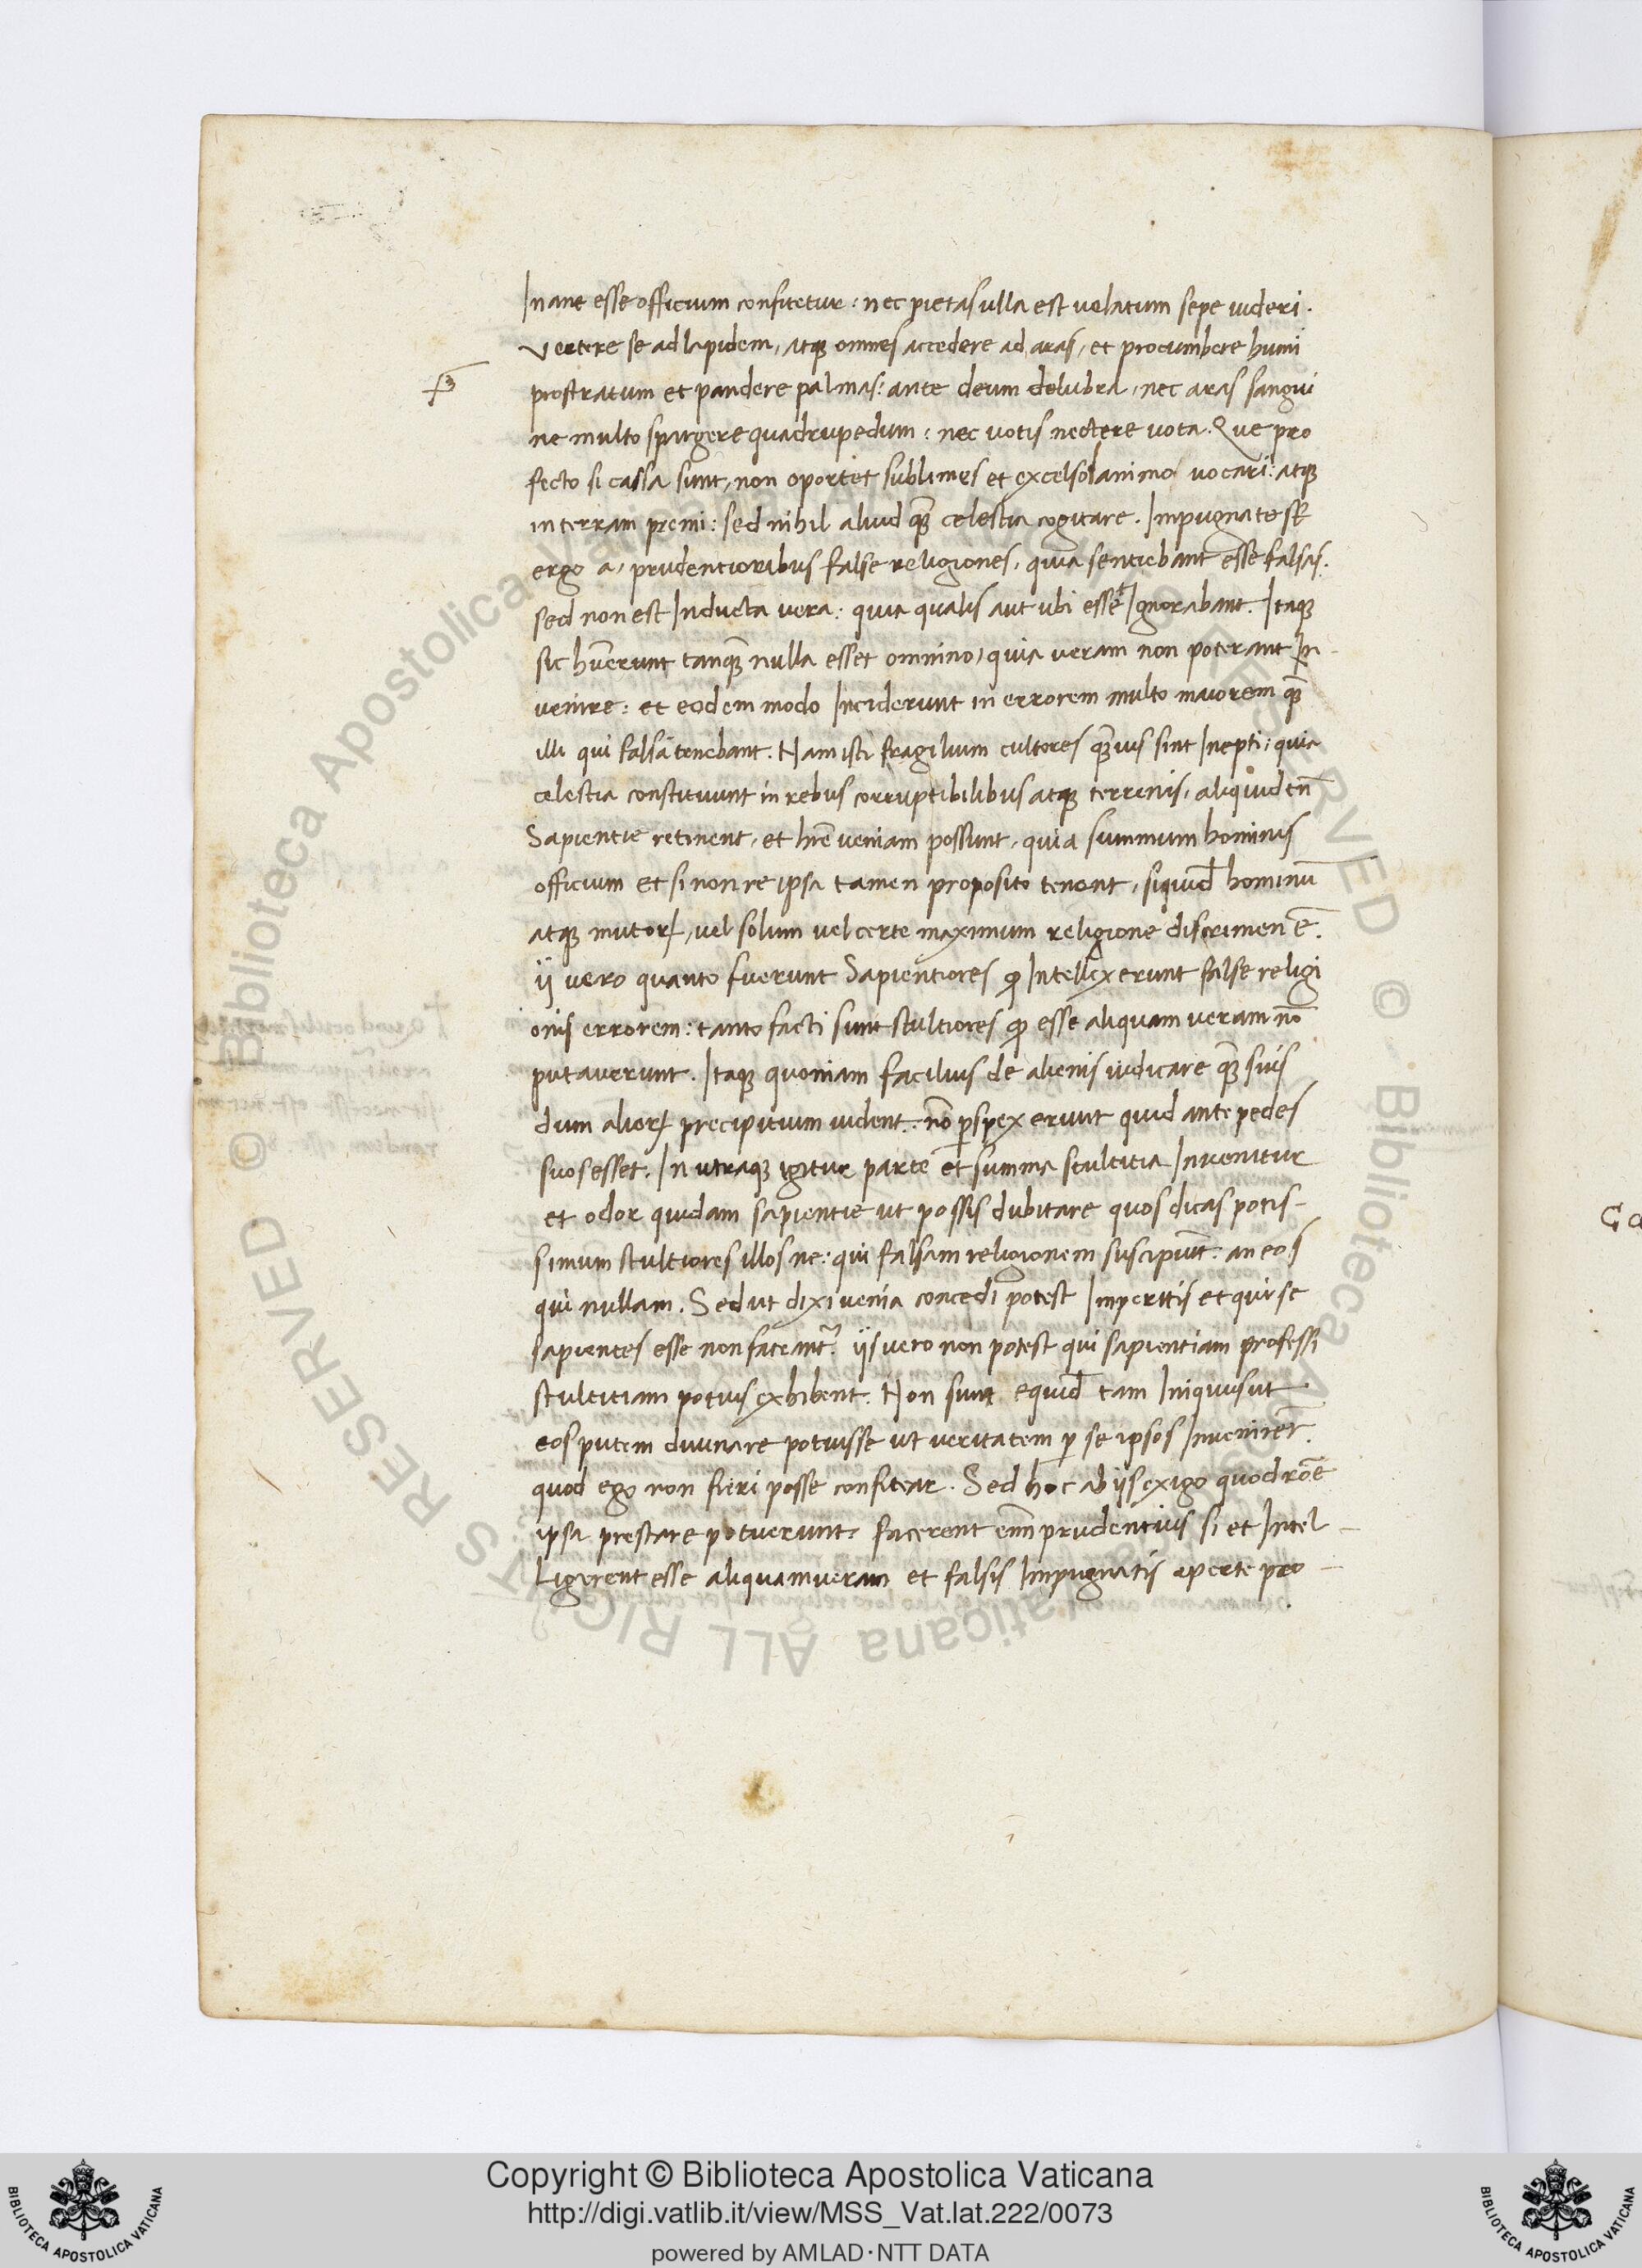 Inane esse officium confitetur: nec pietas ulla est uelatum sepe uideri.
Vertere se ad lapidem, atq; omnes accedere ad aras, et procumbere humi
prostratum et pandere palmas: ante deum delubra, nec aras sangui
ne multo spargere quadrupedum: nec uotis nectere uota. Que pro
fecto si cassa sunt, non oportet sublimes et excelsos animos uocari: atq;
in terram premi: sed nihil aliud q̃ celestia cogitare. Impugnate sꝫ
ergo a, prudentioribus false religiones, quia sentiebant esse falsas:
sed non est Inducta uera: quia qualis aut ubi esset Ignorabant. Itaq;
sic hũerunt tanq̃ nulla esset omnino, quia ueram non poterant In-
uenire: et eodem modo Inciderunt in errorem multo maiorem q̃
illi qui falsã tenebant. Nam isti fragilium cultores q̃uis sint Inepti: quia
celestia constituunt in rebus corruptibilibus atq; terrenis, aliquid tñ
Sapientie retinent, et hr̃e ueniam possunt, quia summum hominis
officium et si non re ipsa tamen proposito tenent, siquid̃ hominũ
atq; mutoꝝ, uel solum uel certe maximum religione discrimen ẽ.
ij uero quanto fuerunt Sapientiores ꝙ Intellexerunt false religi
onis errorem: tanto facti sunt stultiores ꝙ esse aliquam ueram nõ
putauerunt. Itaq; quoniam facilius de alienis iudicare q̃ suis
dum alioꝝ precipitium uident: nõ ꝑspexerunt quid ante pedes
suos esset. In utraq; igitur parte et summa stultitia Inuenitur
et odor quidam sapientie ut possis dubitare quos dicas potis-
simum stultiores illos ne: qui falsam religionem suscipiũt: an eos
qui nullam. Sed ut dixi uenia concedi potest Imperitis et qui se
sapientes esse non fateant᷑: ijs uero non potest qui sapientiam professi
stultitiam potius exhibent. Non sunt equid̃ tam Iniquus ut
eos putem diuinare potuisse ut ueritatem ꝑ se ipsos Inuenirẽt:
quod ego non fieri posse confitear. Sed hoc ab ijs exigo quod rõe
ipsa prestare potuerunt, facerent eñi prudentius si et Intel-
Ligerent esse aliquam ueram et falsis Impugnatis aperte pro-
Copyright © Biblioteca Apostolica Vaticana
http://digi.vatlib.it/view/MSS_Vat.lat.222/0073
powered by AMLAD·NTT DATA
BIBLIOTECA APOSTOLICA VATICANA
BIBLIOTECA APOSTOLICA VATICANA
© Biblioteca Apostolica Vaticana ALL RIGHTS RESERVED © Biblioteca Apostolica Vaticana ALL RIGHTS RESERVED